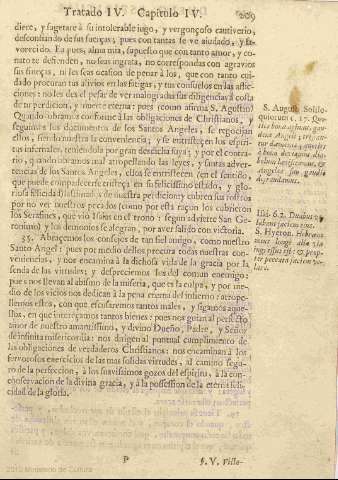 Tratado IV. Capitulo IV. 209
diere, y sugetare à su intolerable iugo, y vergonçoso cautiverio,
desconfiando de sus fuerças; pues con tantas se ve aiudado, y fa-
vorecido. Ea pues, alma mia, supuesto que con tanto amor, y co-
nato te defienden, no seas ingrata, no correspondas con agravios
sus finezas, ni les seas ocasion de penar à los, que con tanto cui-
dado procuran tus alivios en las fatigas, y tus consuelos en las aflic-
ciones: no les des el pesar de ver malogradas sus diligencias à costa
de tu perdicion, y muerte eterna: pues (como afirma S. Augustin)
Quando obramos conforme à las obligaciones de Christianos, y
seguimos los documentos de los Santos Angeles, se regocijan
ellos, siendo nuestra la conveniencia; y se entristecen los espiri-
tus infernales, teniendolo por gran desdicha suya; y por el contra-
rio, quando obramos mal atropellando las leyes, y santas adver-
tencias de los Santos Angeles, ellos se entristecen (en el sentido,
que puede compadecerse tristeza en su felicissimo estado, y glo-
riosa felicidad) lastimados de nuestra perdicion; y cubren sus rostros
por no ver nuestros pecados (como por esta raçon los cubrieron
los Serafines, que viò Isaias en el trono: segun advierte San Ge-
ronimo) y los demonios se alegran, por aver salido con victoria.
35. Abracemos los consejos de tan fiel amigo, como nuestro
Santo Angel: pues por medio dellos procura todas nuestras con-
veniencias; y nos encamina à la dichosa vida de la gracia por la
senda de las virtudes; y despreciemos los del comun enemigo:
pues nos llevan al abismo de la miseria, que es la culpa, y por me-
dio de los vicios nos dedican à la pena eterna del infierno: atrope-
llemos estos, con que escusaremos tantos males, y sigamos aque-
llos, en que interesamos tantos bienes: pues nos guian al perfecto
amor de nuestro amantissimo, y divino Dueño, Padre, y Señor
de infinita misericordia: nos dirigen al puntual cumplimiento de
las obligaciones de verdaderos Christianos: nos encaminan à los
fervorosos exercicios de las mas solidas virtudes, al camino segu-
ro de la perfeccion, à los suavissimos gozos del espiritu, à la con-
servacion de la divina gracia, y à la possession de la eterna feli-
cidad de la gloria.
P §. V. Filio-
S. August. Solilo-
quiorum c. 17.
Isai. 6. 2. Duabus ve-
labant faciem eius.
S. Hyeron.
2010 Ministerio de Cultura